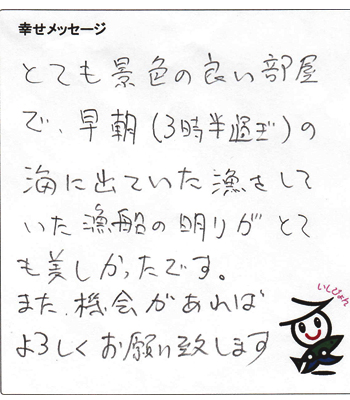 幸せメッセージ
とても景色の良い部屋
で、早朝(3時半過ぎ)の
海に出ていた漁をして
いた漁船の明りがとて
も美しかったです。
また、機会があれば
よろしくお願い致します
いしぴょん